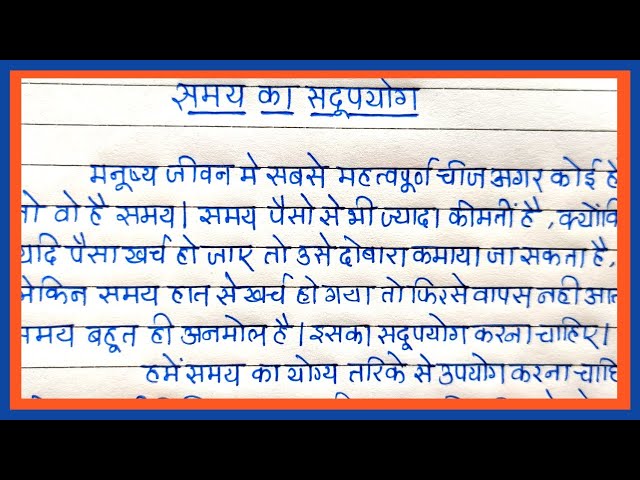 समय का सदूपयोग
मनूष्य जीवन मे सबसे महत्वपूर्ण चीज अगर कोई है
तो वो है समय। समय पैसो से भी ज्यादा कीमतीं है, क्योंकि
यदि पैसा खर्च हो जाए तो उसे दोबारा कमाया जा सकता है,
लेकिन समय हात से खर्च हो गया तो फिर से वापस नही आत
समय बहूत ही अनमोल है। इसका सदूपयोग करना चाहिए।
हमें समय का योग्य तरिके से उपयोग करना चाहि